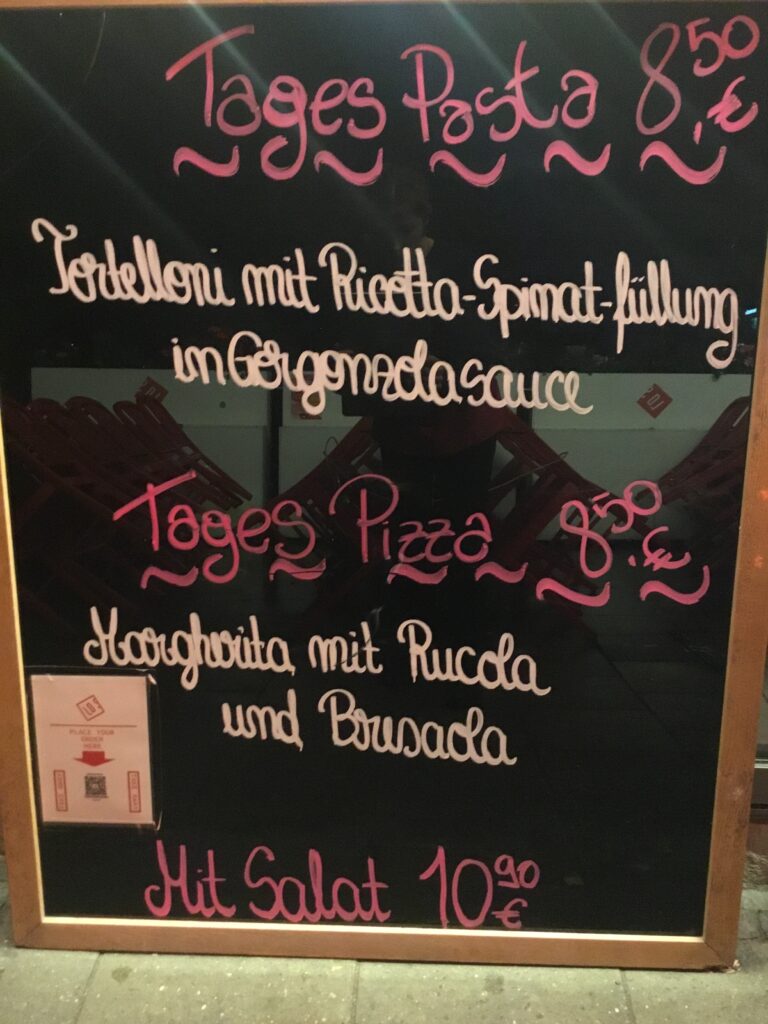 Tages Pasta 8,50 €
Tortelloni mit Ricotta-Spinat-füllung
in Gorgonzolasauce
Tages Pizza 8.50 €
Margherita mit Rucola
und Bresaola
PLACE YOUR
ORDER
HERE
Mit Salat 10 90 €